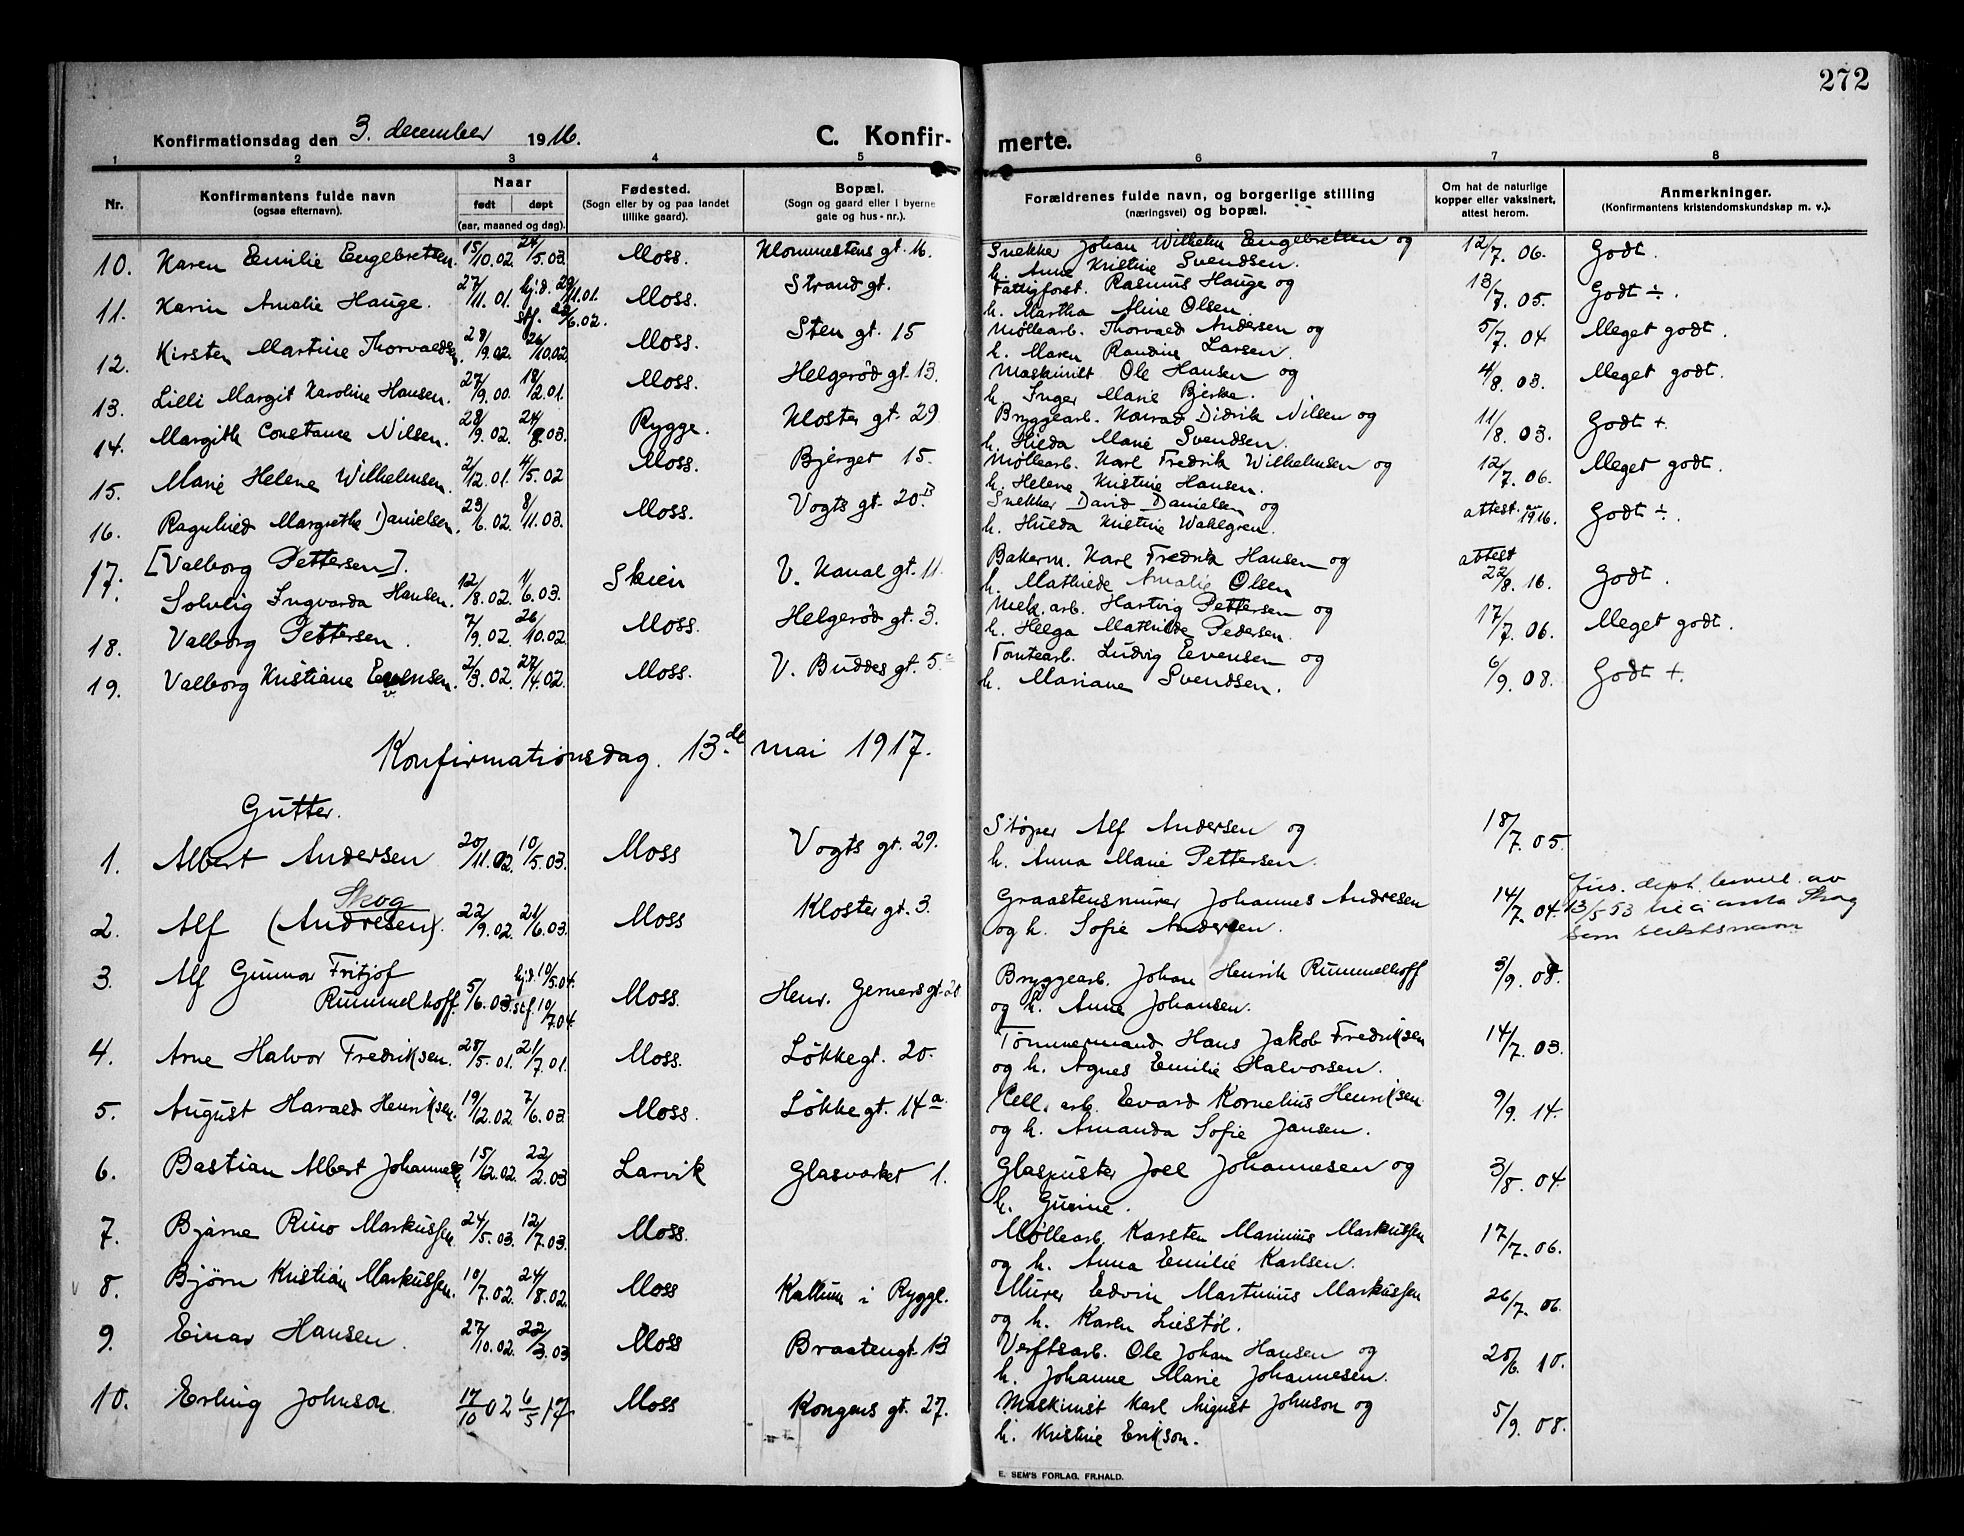 272
Konfirmationsdag den 3. december 1916.
C. Konfirmerte.
1 2 3 4 5 6 7 8
Nr. Konfirmantens fulde navn (ogsaa efternavn). Naar født døpt (aar, maaned og dag). Fødested. (Sogn eller by og paa landet tillike gaard). Bopæl. (Sogn og gaard eller i byerne gate og hus-nr.). Forældrenes fulde navn, og borgerlige stilling (næringsvei) og bopæl. Om hat de naturlige kopper eller vaksinert, attest herom. Anmerkninger. (Konfirmantens kristendomskundskap m. v.).
10. Karen Emilie Engebretsen. 15/10.02. 24/5.03. Moss. Klommestens gt. 16. Snekker Johan Wilhelm Engebretsen og 12/7.06. Godt.
h. Anne Kristine Svendsen.
11. Karin Amalie Hauge. 27/11.01. hj.d. 29/11.01. Moss. Strand gt. Fattigforst. Rasmus Hauge og 13/7.05. Godt ÷.
stf. 22/6.02. h. Martha Aline Olsen.
12. Kirsten Martine Thorvaldsen. 28/9.02. 26/10.02 Moss. Sten gt. 15 Møllearb. Thorvald Andersen og 5/7.04 Meget godt.
h. Maren Randine Larsen.
13. Lilli Margit Karoline Hansen. 27/9.00. 18/2.01. Moss. Helgerød gt. 13. Maskinist Ole Hansen og 4/8.03. Meget godt.
h. Inger Marie Bjerke.
14. Margith Constance Nilsen. 28/9.02. 24/8.03. Rygge. Kloster gt. 29. Bryggearb. Konrad Didrik Nilsen og 11/8.03. Godt +.
h. Hilda Marie Svendsen.
15. Marie Helene Wilhelmsen. 2/12.01. 4/5.02 Moss. Bjerget 15. Møllearb. Karl Fredrik Wilhelmsen og 12/7.06. Meget godt.
h. Helene Kristine Hansen.
16. Ragnhild Margrethe Danielsen. 29/6.02. 8/11.03. Moss. Vogts gt. 20 B Snekker David Danielsen og attest 1916. Godt ÷.
h. Hulda Kristine Wahlgren.
17. [Valborg Pettersen]. Bakerm. Karl Fredrik Hansen og attest
Solvlig Ingvarda Hansen. 12/8.02. 1/6.03. Skien V. Kanal gt. 11. h. Mathilde Amalie Olsen 22/8.16. Godt.
18. Valborg Pettersen. 7/9.02. 26/10.02. Moss. Helgerød gt. 3. Mek. arb. Hartvig Pettersen og 17/7.06. Meget godt.
h. Helga Mathilde Pedersen.
19. Valborg Kristiane Evensen. 2/3.02. 27/4.02. Moss. V. Buddes gt. 5 Tomtearb. Ludvig Evensen og 6/9.08. Godt +.
h. Mariane Svendsen.
Konfirmationsdag. 13.de mai 1917.
Gutter.
1. Albert Andersen 20/11.02. 10/5.03. Moss Vogts gt. 29. Støper Alf Andersen og 18/7.05.
h. Anna Marie Pettersen.
Skog
2. Alf (Andresen). 22/9.02. 21/6.03. Moss Kloster gt. 3. Graastensmurer Johannes Andresen 14/7.04. Jus. dept. bevill. av
og h. Sofie Andersen. 13/5-53 til å anta Skog
som slektsnavn
3. Alf Gunnar Fritjof hj.d. 10/5.04. Bryggearb. Johan Henrik Rummelhoff 3/9.08.
Rummelhoff. 5/6.03. stf. 10/7.04. Moss. Henr. Gerners gt. 20 og h. Anne Johansen.
4. Arne Halvor Fredriksen. 28/5.01. 21/7.01. Moss. Løkkegt. 20. Tømmermand Hans Jakob Fredriksen 14/7.03.
og h. Agnes Emilie Halvorsen.
5. August Harald Henriksen. 19/12.02. 7/6.03. Moss. Løkkegt. 14 a. Cell. arb. Edvard Kornelius Henriksen 9/9.14.
og h. Amanda Sofie Jansen.
6. Bastian Albert Johannesen 15/12.02. 22/2.03 Larvik Glasværket 1. Glaspuster Joel Johannesen og 3/8.04
h. Gurine.
7. Bjarne Rino Markussen 24/5.03. 12/7.03. Moss. Møllearb. Karsten Marinius Markussen 17/7.06.
og h. Anna Emilie Karlsen.
8. Bjørn Kristian Markussen. 10/7.02. 24/8.02. Moss Kallum i Rygge. Murer Edvin Martinius Markussen 26/7.06.
og h. Karen Liestøl.
9. Einar Hansen. 27/10.02. 22/3.03 Moss Braatengt. 13 Verftsarb. Ole Johan Hansen og 20/6.10.
h. Johanne Marie Johannesen.
10. Erling Johnson. 17/10 02 6/5 17 Moss Kongens gt. 27. Maskinist Karl August Johnson og 5/9.08.
h. Kristine Erikson.
E. SEM'S FORLAG, FR.HALD.